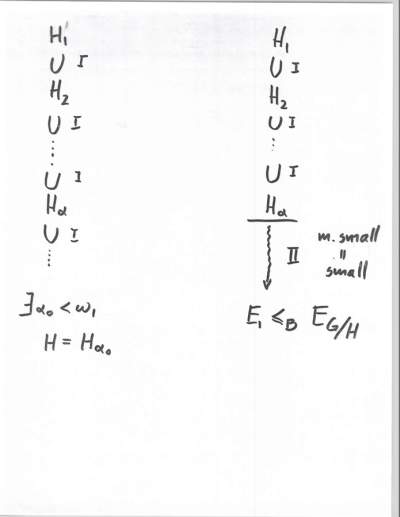 H₁
∪ I
H₂
∪ I
⋮
∪ I
H_α
∪ I
⋮
∃α₀ < ω₁
H = H_α₀
H₁
∪ I
H₂
∪ I
⋮
∪ I
H_α
II
m. small
=
small
E₁ ≤_B E_G/H